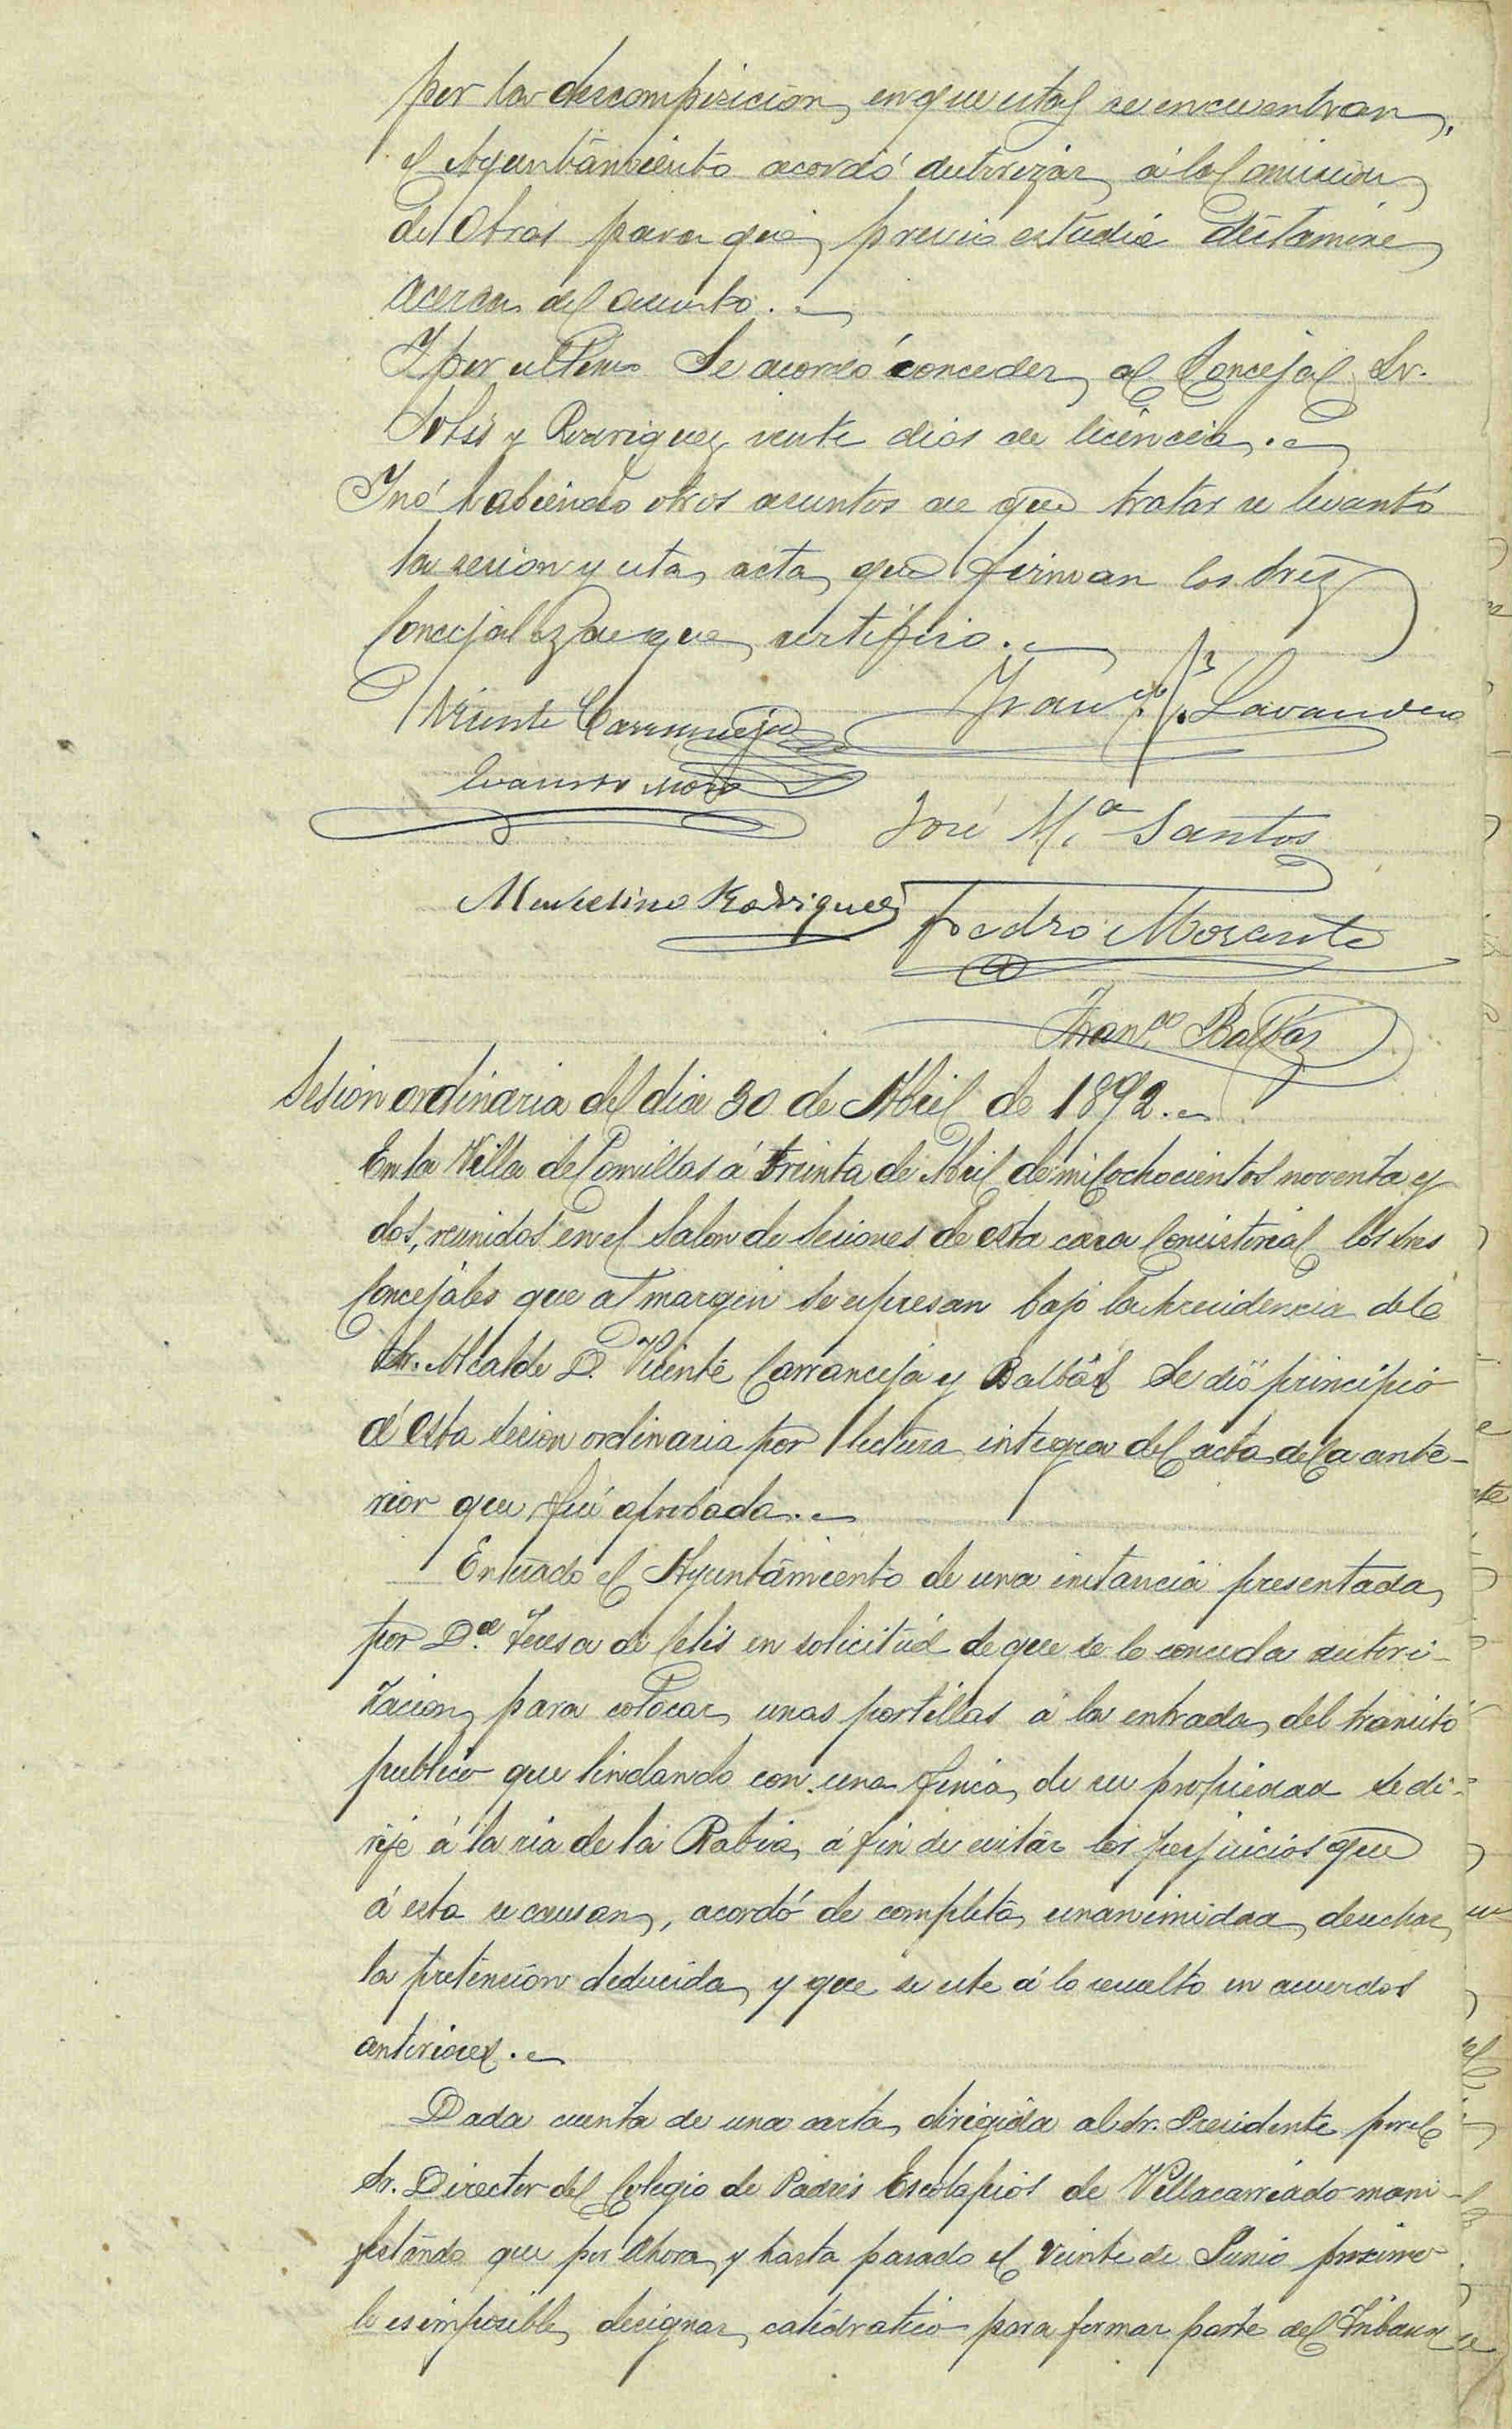 por la descomposicion en que estas se encuentran,
el Ayuntamiento acordó autorizar á la Comision
de Obras para que previo estudio dictamine
acerca del asunto.
Y por ultimo Se acordó conceder al Concejal Sr.
Solis y Rodriguez veinte dias de licencia.
Y nó habiendo otros asuntos de que tratar se levantó
la sesion y esta acta que firman los Sres
Concejales de que certifico.
Vicente Carranceja Fran.co Lavandera
Evaristo Moro
José M.a Santos
Marcelino Rodriguez Pedro Morante
Fran.co Balbás
Sesion ordinaria del dia 30 de Abril de 1892.
En la Villa de Comillas á treinta de Abril de mil ochocientos noventa y
dos, reunidos en el Salon de Sesiones de esta casa Consistorial los Sres
Concejales que al margen se espresan bajo la presidencia del
Sr. Alcalde D. Vicente Carranceja y Balbás Se dió principio
á esta sesion ordinaria por lectura integra del acta de la ante-
rior que fué aprobada.
Enterado el Ayuntamiento de una instancia presentada
por D.a Teresa de Celis en solicitud de que se le conceda autori-
zacion para colocar unas portillas á la entrada del transito
publico que lindando con una finca de su propiedad se di-
rije á la ria de la Rabia, á fin de evitar los perjuicios que
á esta se causan, acordó de completa unanimidad desechar
la pretension deducida y que se esté á lo resuelto en acuerdos
anteriores.
Dada cuenta de una carta dirigida al Sr. Presidente por el
Sr. Director del Colegio de Padres Escolapios de Villacarriedo mani-
festando que por ahora y hasta pasado el veinte de Junio proximo
le es imposible designar catedratico para formar parte del Tribunal